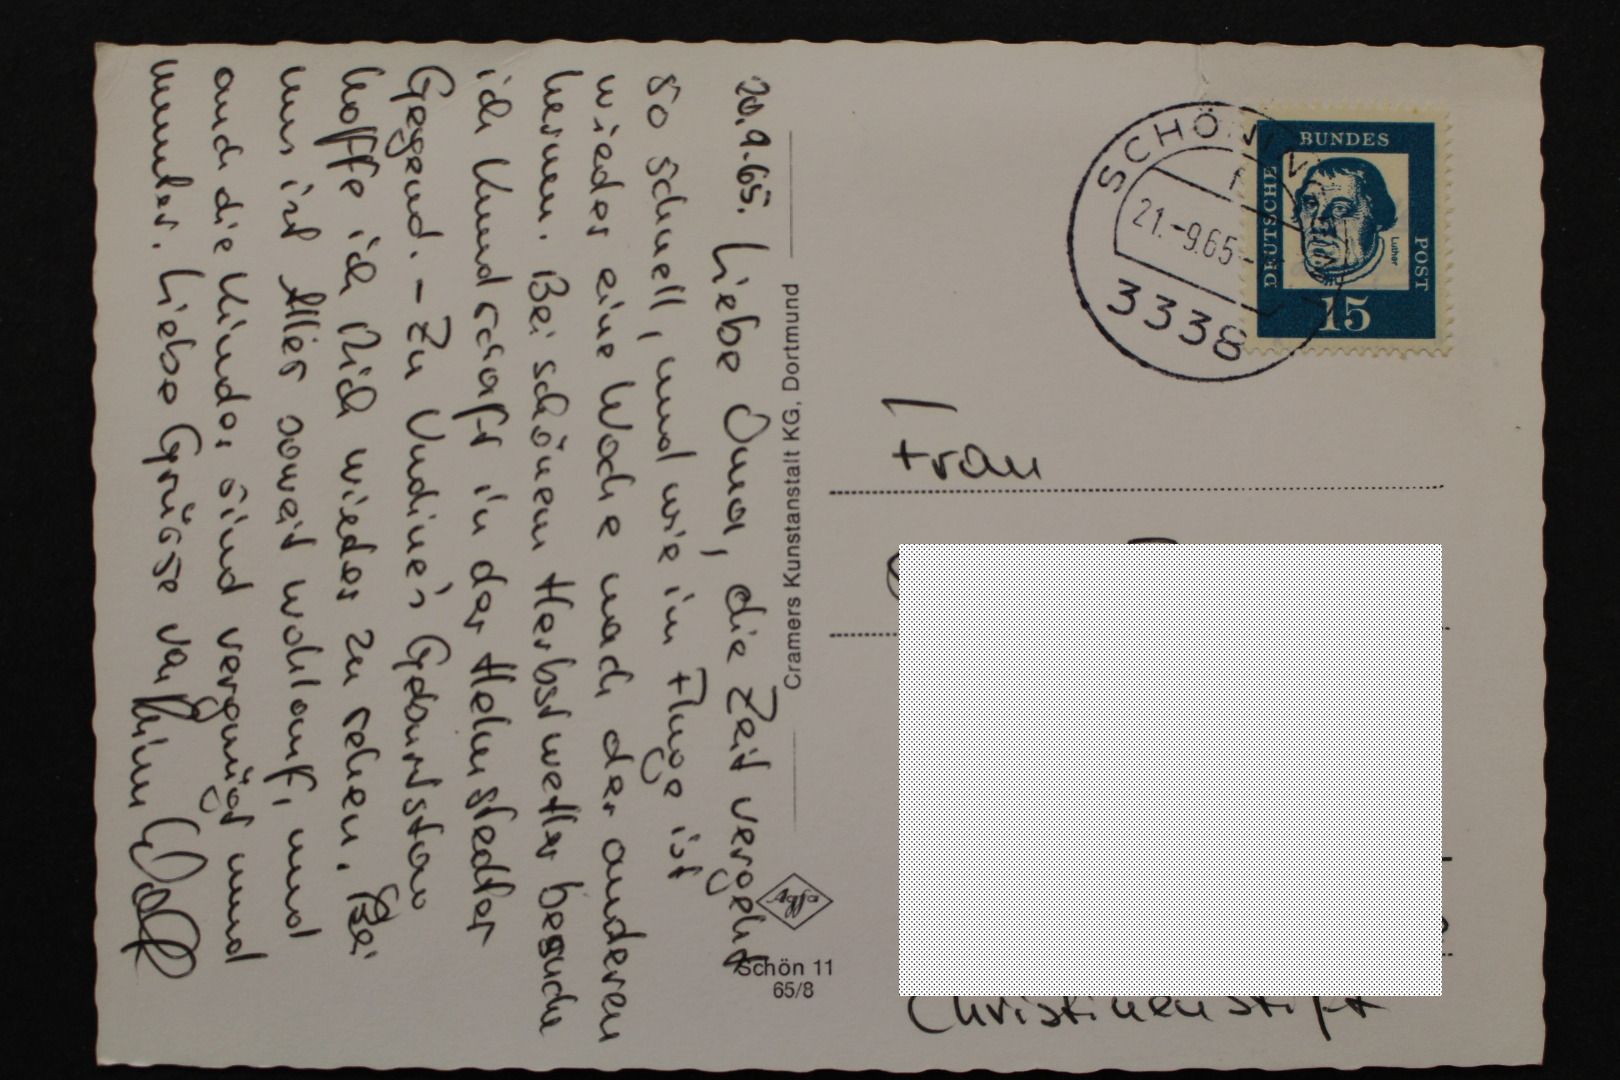 20.9.65. Liebe Oma, die Zeit vergeht
so schnell, und wie im Fluge ist
wieder eine Woche nach der anderen
herum. Bei schönem Herbstwetter besuche
ich Kundschaft in der Helmstedter
Gegend. - Zu Undine's Geburtstag
hoffe ich Dich wieder zu sehen. Bei
uns ist Alles soweit wohlauf, und
auch die Kinder sind vergnügt und
munter. Liebe Grüsse von
Cramers Kunstanstalt KG, Dortmund
Agfa
Schön 11
65/8
SCHÖNINGEN
21.-9.65
3338
DEUTSCHE
BUNDES
POST
Luther
15
Frau
Christinenstift